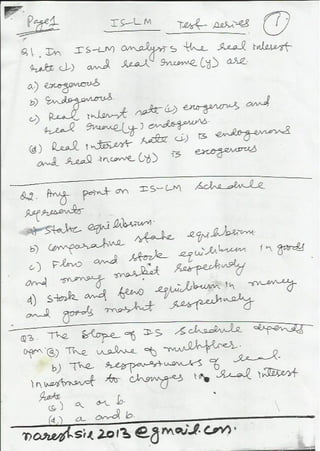 Page 1 IS-LM Test series 1
Q1. In IS-LM analysis the real interest
rate (i) and real Income (y) are
a) exogenous
b) Endogenous
c) Real interest rate (i) exogenous and
real Income (y) endogenous
(d) Real Interest rate (i) is endogenous
and real income (y) is exogenous
Q2. Any point on IS-LM schedule
represents
a) Static equilibrium.
b) Comparative static equilibrium
c) Flow and stock equilibrium in goods
and money market respectively
d) Stock and flow equilibrium in money
and goods market respectively
Q3. The slope of IS schedule depends
upon (a) The value of multiplier.
b) The responsiveness of real
Investment to changes in real interest
rate
(c) a or b
(d) a and b
nareshsie2013@gmail.com.